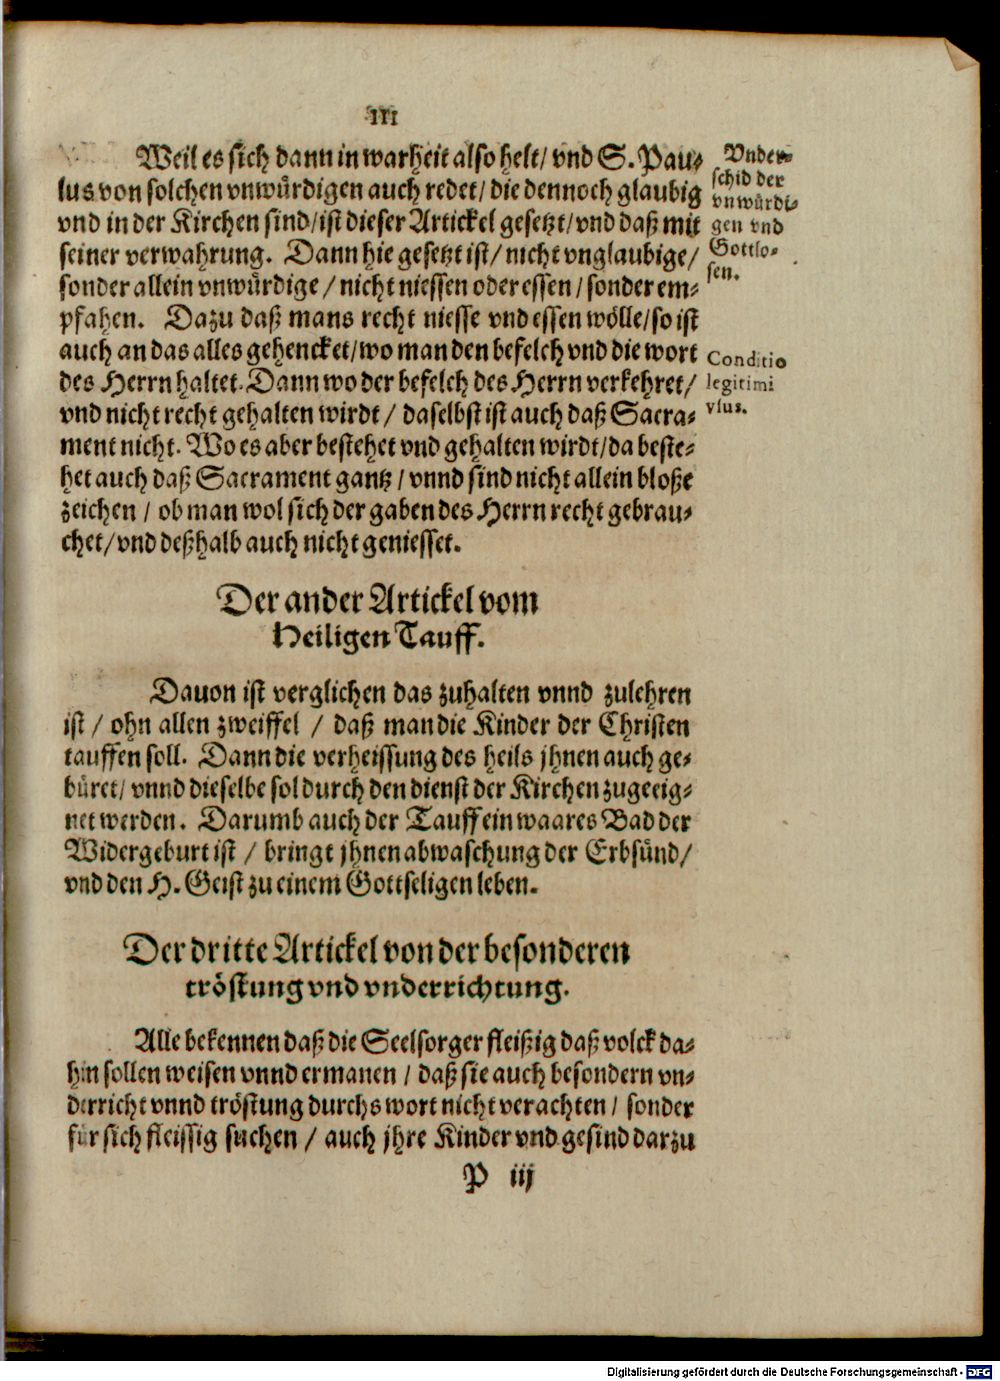 111
Weil es sich dann in warheit also helt/ vnd S. Pau-
lus von solchen vnwürdigen auch redet/ die dennoch glaubig
vnd in der Kirchen sind/ ist dieser Artickel gesetzt/ vnd daß mit
seiner verwahrung. Dann hie gesetzt ist/ nicht vnglaubige/
sonder allein vnwürdige/ nicht niessen oder essen/ sonder em-
pfahen. Dazu daß mans recht niesse vnd essen wölle/ so ist
auch an das alles gehencket/ wo man den befelch vnd die wort
des Herrn haltet. Dann wo der befelch des Herrn verkehret/
vnd nicht recht gehalten wirdt/ daselbst ist auch daß Sacra-
ment nicht. Wo es aber bestehet vnd gehalten wirdt/ da beste-
het auch daß Sacrament gantz/ vnnd sind nicht allein bloße
zeichen/ ob man wol sich der gaben des Herrn recht gebrau-
chet/ vnd deßhalb auch nicht geniesset.
Vnder-
schid der
vnwürdi-
gen vnd
Gottlo-
sen.
Conditio
legitimi
vsus.
Der ander Artickel vom
Heiligen Tauff.
Dauon ist verglichen das zuhalten vnnd zulehren
ist/ ohn allen zweiffel/ daß man die Kinder der Christen
tauffen soll. Dann die verheissung des heils jhnen auch ge-
büret/ vnnd dieselbe sol durch den dienst der Kirchen zugeeig-
net werden. Darumb auch der Tauff ein waares Bad der
Widergeburt ist/ bringt jhnen abwaschung der Erbsünd/
vnd den H. Geist zu einem Gottseligen leben.
Der dritte Artickel von der besonderen
tröstung vnd vnderrichtung.
Alle bekennen daß die Seelsorger fleißig daß volck da-
hin sollen weisen vnnd ermanen/ daß sie auch besondern vn-
derricht vnnd tröstung durchs wort nicht verachten/ sonder
für sich fleissig suchen/ auch jhre Kinder vnd gesind darzu
P iij
Digitalisierung gefördert durch die Deutsche Forschungsgemeinschaft - DFG